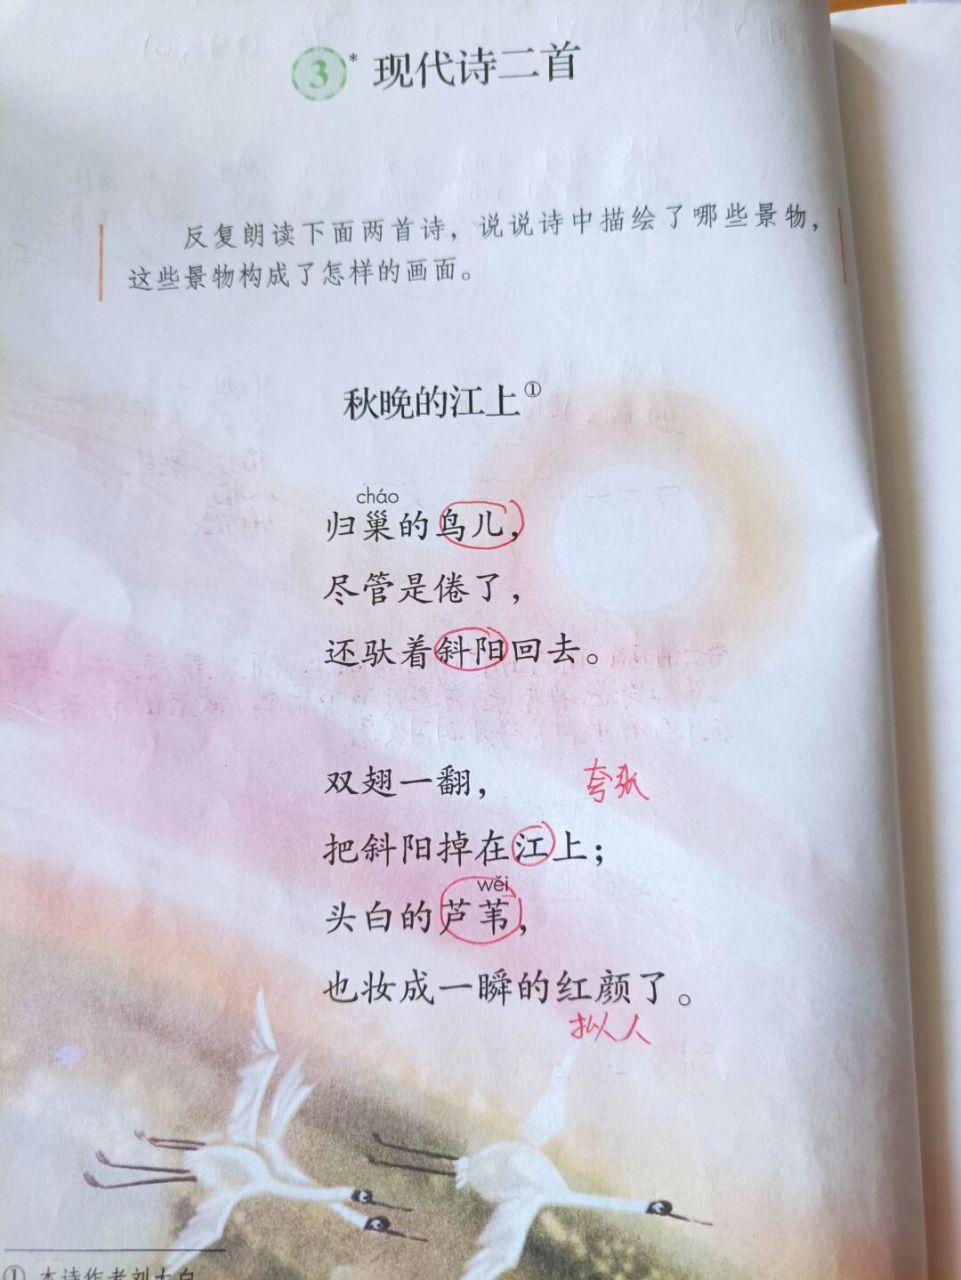 3* 现代诗二首
反复朗读下面两首诗，说说诗中描绘了哪些景物，
这些景物构成了怎样的画面。
秋晚的江上①
cháo
归巢的鸟儿，
尽管是倦了，
还驮着斜阳回去。
双翅一翻，
夸张
把斜阳掉在江上；
wěi
头白的芦苇，
也妆成一瞬的红颜了。
拟人
① 本诗作者刘大白